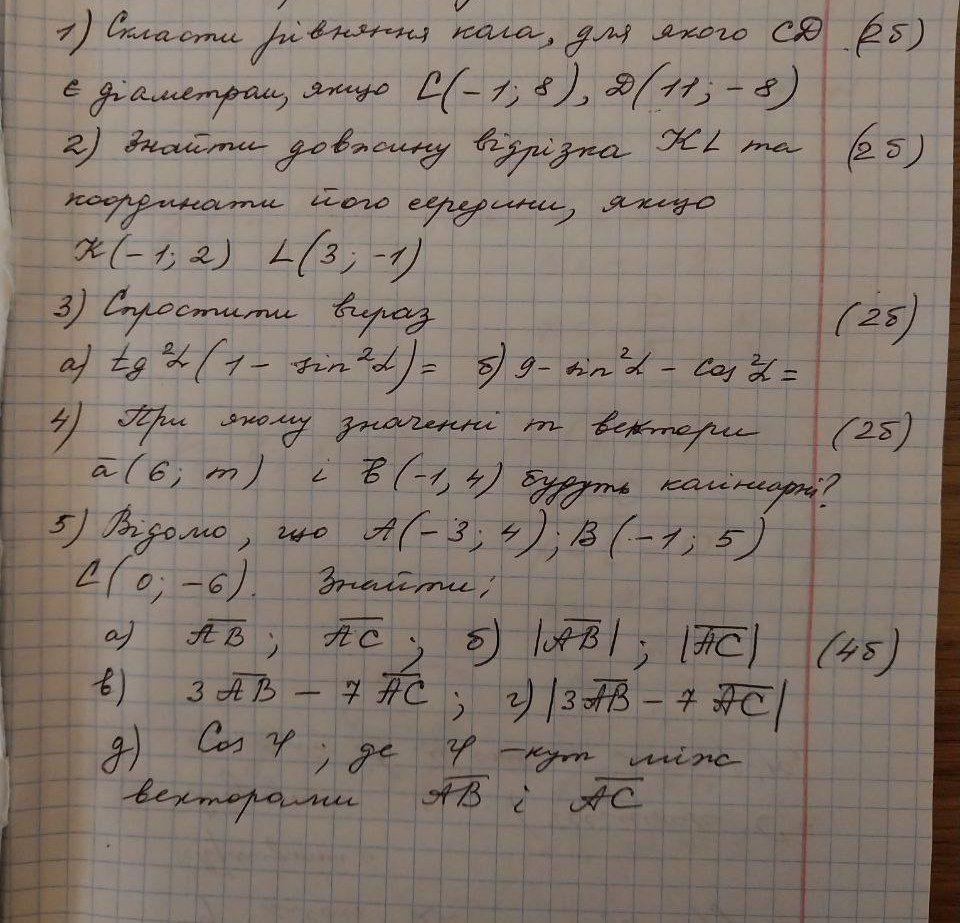 1) Скласти рівняння кола, для якого CD (2б)
є діаметром, якщо C(-1; 8), D(11; -8)
2) Знайти довжину відрізка KL та (2б)
координати його середини, якщо
K(-1; 2) L(3; -1)
3) Спростити вираз (2б)
а) tg²α(1 - sin²α) = б) 9 - sin²α - cos²α =
4) При якому значенні m вектори (2б)
a̅(6; m) і b̅(-1, 4) будуть колінеарні?
5) Відомо, що A(-3; 4); B(-1; 5)
C(0; -6). Знайти:
а) A̅B̅; A̅C̅; б) |A̅B̅|; |A̅C̅| (4б)
в) 3A̅B̅ - 7A̅C̅; г) |3A̅B̅ - 7A̅C̅|
д) Cos φ; де φ - кут між
векторами A̅B̅ і A̅C̅